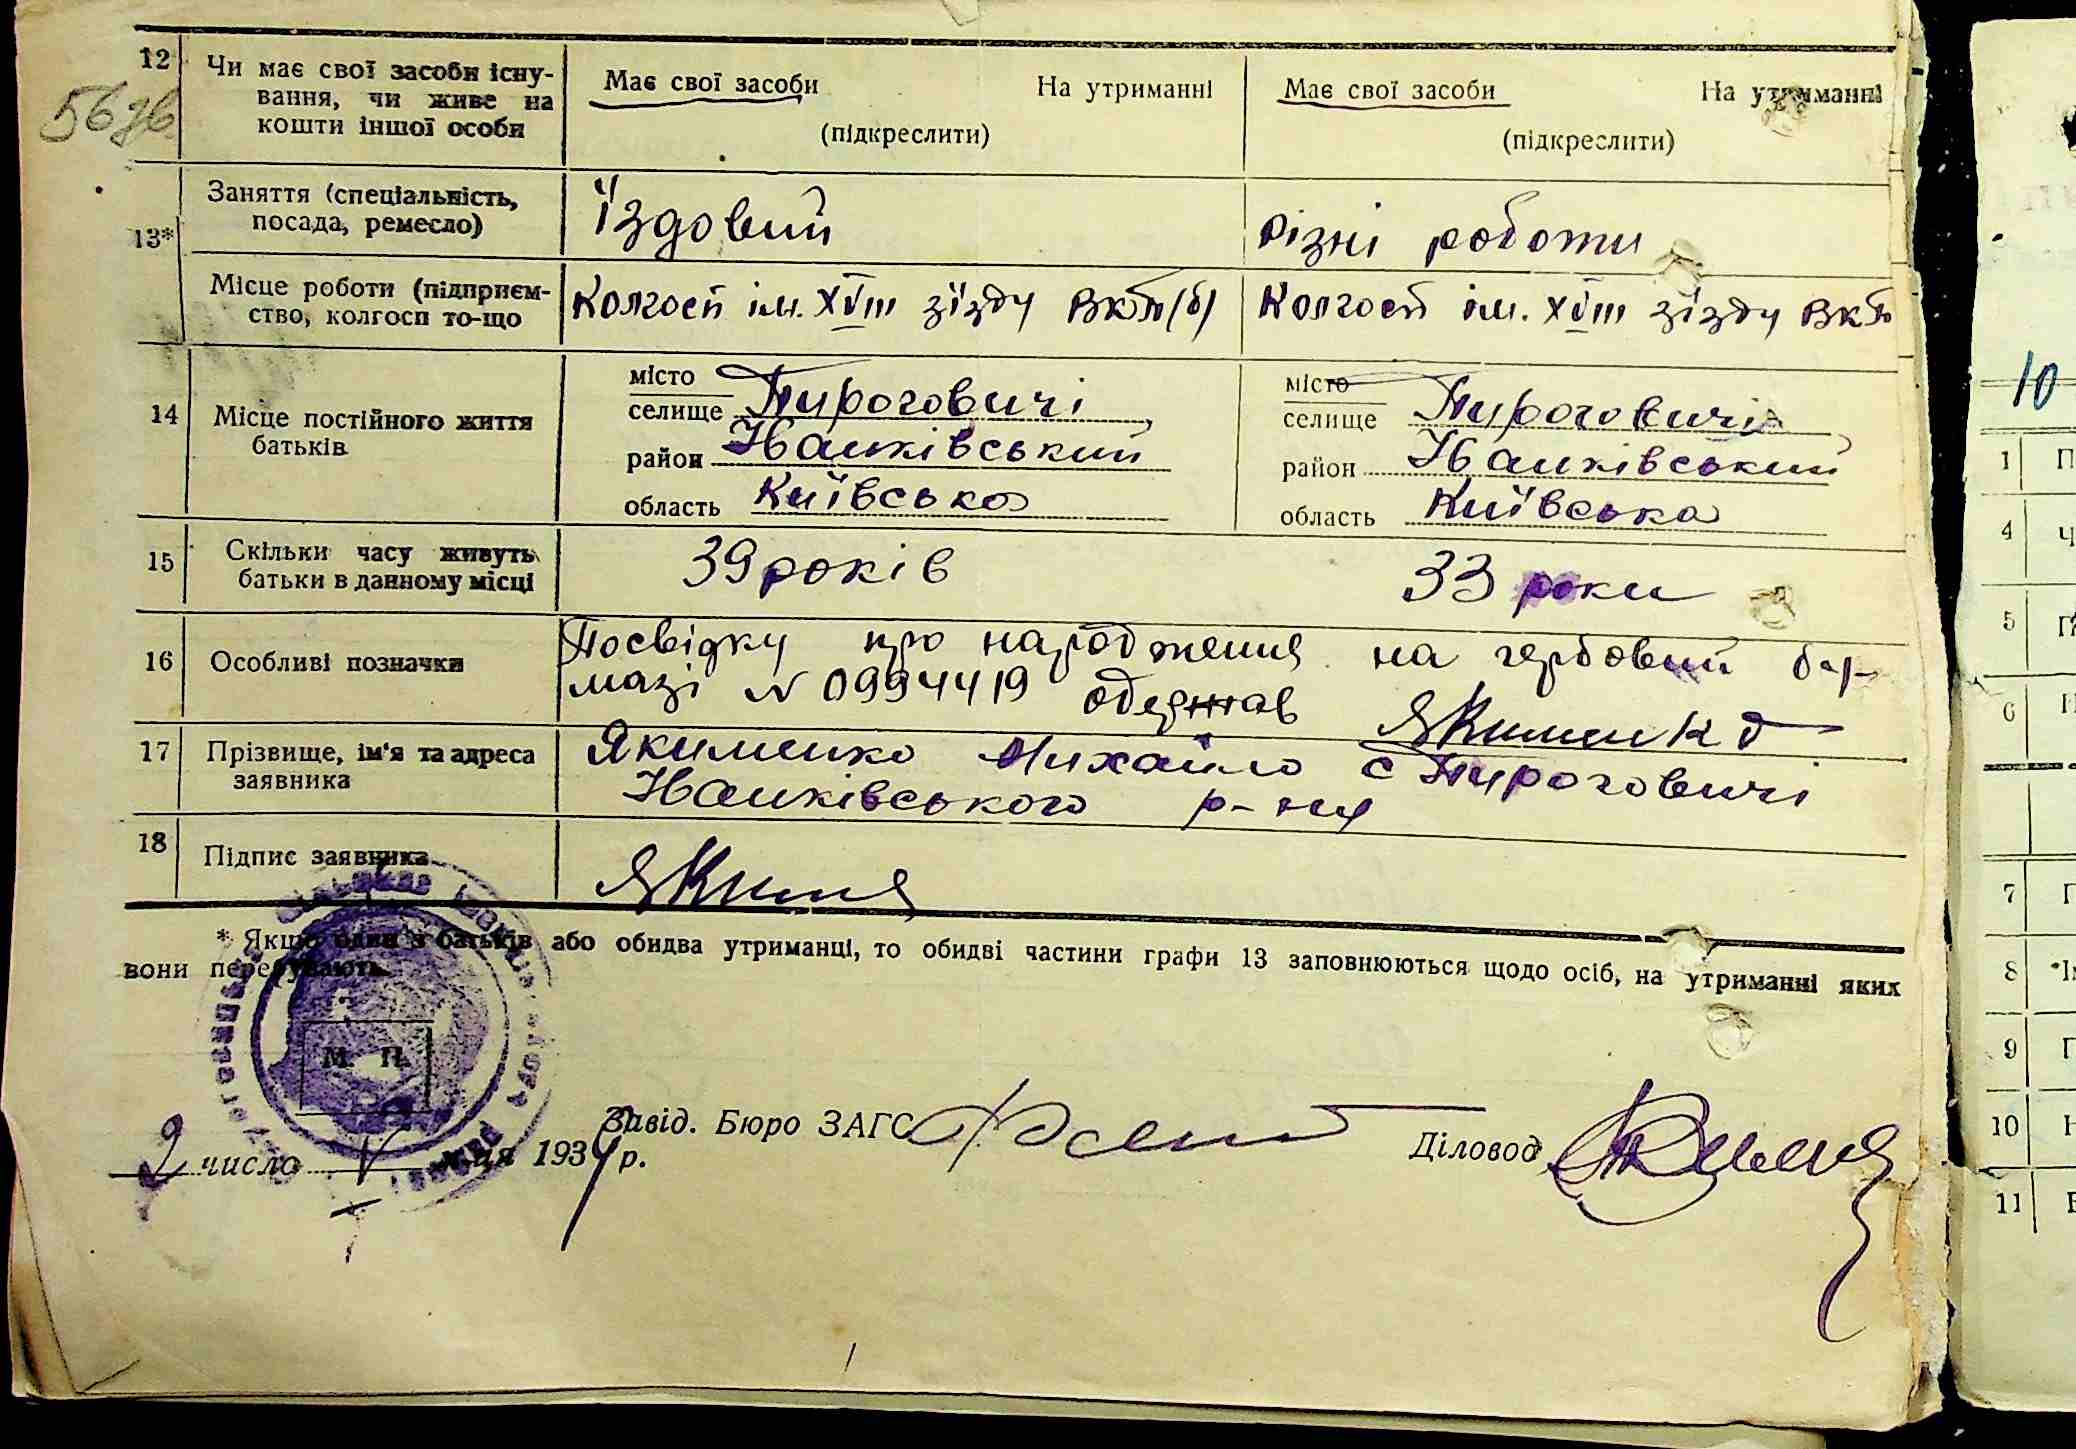 12
Чи має свої засоби існу-
вання, чи живе на
кошти іншої особи
Має свої засоби На утриманні
(підкреслити)
Має свої засоби На утриманні
(підкреслити)
56 зв
13*
Заняття (спеціальність,
посада, ремесло)
Їздовий
різні роботи
Місце роботи (підприєм-
ство, колгосп то-що
Колгосп ім. XVIII зїзду ВКП(б)
Колгосп ім. XVIII зїзду ВКП
14
Місце постійного життя
батьків
місто
селище Пироговичі
район Іванківський
область Київська
місто
селище Пироговичі
район Іванківський
область Київська
15
Скільки часу живуть
батьки в данному місці
39 років
33 роки
16
Особливі позначки
Посвідку про народження на гербовий бу-
мазі № 0994419 одержав Якименко
17
Прізвище, ім'я та адреса
заявника
Якименко Михайло с Пироговичі
Іванківського р-ну
18
Підпис заявника
* Якщо один з батьків або обидва утриманці, то обидві частини графи 13 заповнюються щодо осіб, на утриманні яких
вони перебувають.
М. П.
Завід. Бюро ЗАГС
Діловод
2 число V м-ця 193 р.
10
1 П
4 Ч
5
6
7
8
9
10
11